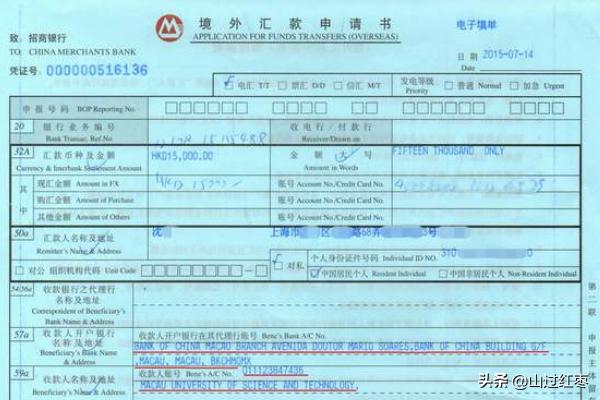 境外汇款申请书
APPLICATION FOR FUNDS TRANSFERS (OVERSEAS)
电子填单
致：招商银行
TO: CHINA MERCHANTS BANK
日期 2015-07-14
Date
凭证号: 000000516136
电汇 T/T 票汇 D/D 信汇 M/T
发电等级 Priority 普通 Normal 加急 Urgent
申报号码 BOP Reporting No.
20 银行业务编号
Bank Transac. Ref.No
收电行/付款行
Receiver/Drawn on
32A 汇款币种及金额
Currency & Interbank Settlement Amount
HKD15,000.00
金额大写
Amount in Words
FIFTEEN THOUSAND ONLY
其中
现汇金额 Amount in FX
账号 Account No./Credit Card No.
购汇金额 Amount of Purchase
账号 Account No./Credit Card No.
其他金额 Amount of Others
账号 Account No./Credit Card No.
50a 汇款人名称及地址
Remitter's Name & Address
沈
上海市 区 路68弄 3号
对公 组织机构代码 Unit Code
对私
个人身份证件号码 Individual ID NO.
310 0
中国居民个人 Resident Individual 中国非居民个人 Non-Resident Individual
54/56a 收款银行之代理行
名称及地址
Correspondent of Beneficiary's
Bank Name & Address
57a 收款人开户银行
名称及地址
Beneficiary's Bank Name
& Address
收款人开户银行在其代理行账号 Bene's Bank A/C No.
BANK OF CHINA MACAU BRANCH AVENIDA DOUTOR MARIO SOARES,BANK OF CHINA BUILDING G/F
,MACAU, MACAU, BKCHMOMX
59a 收款人名称及地址
Beneficiary's Name & Address
收款人账号 Bene's A/C No. 01112384743​6
MACAU UNIVERSITY OF SCIENCE AND TECHNOLOGY,
第二联 申报主体留
头条 @山过红枣